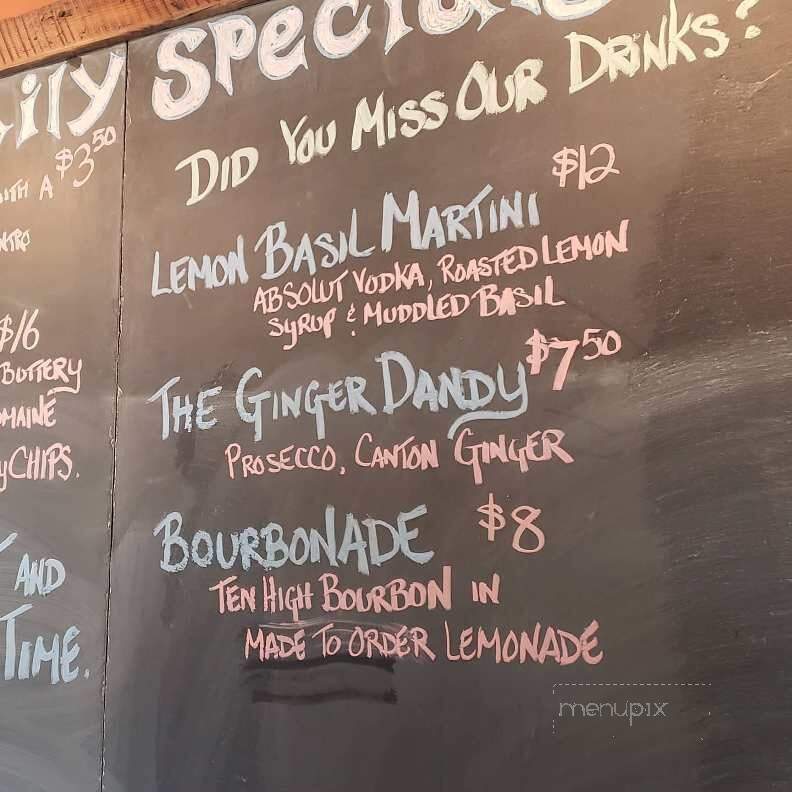 ily Specials
Did You Miss Our Drinks?
ith a $3.50
ntro
$16
Buttery
omaine
y Chips.
and
Time.
Lemon Basil Martini $12
Absolut Vodka, Roasted Lemon
Syrup & Muddled Basil
The Ginger Dandy $7.50
Prosecco, Canton Ginger
Bourbonade $8
Ten High Bourbon in
Made to Order Lemonade
menupix